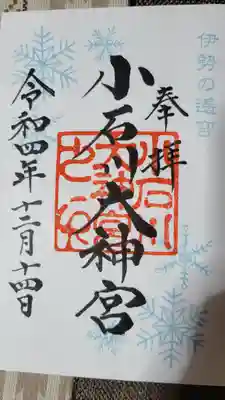 伊勢の遙宮
奉拝
小石川大神宮
令和四年十二月十四日